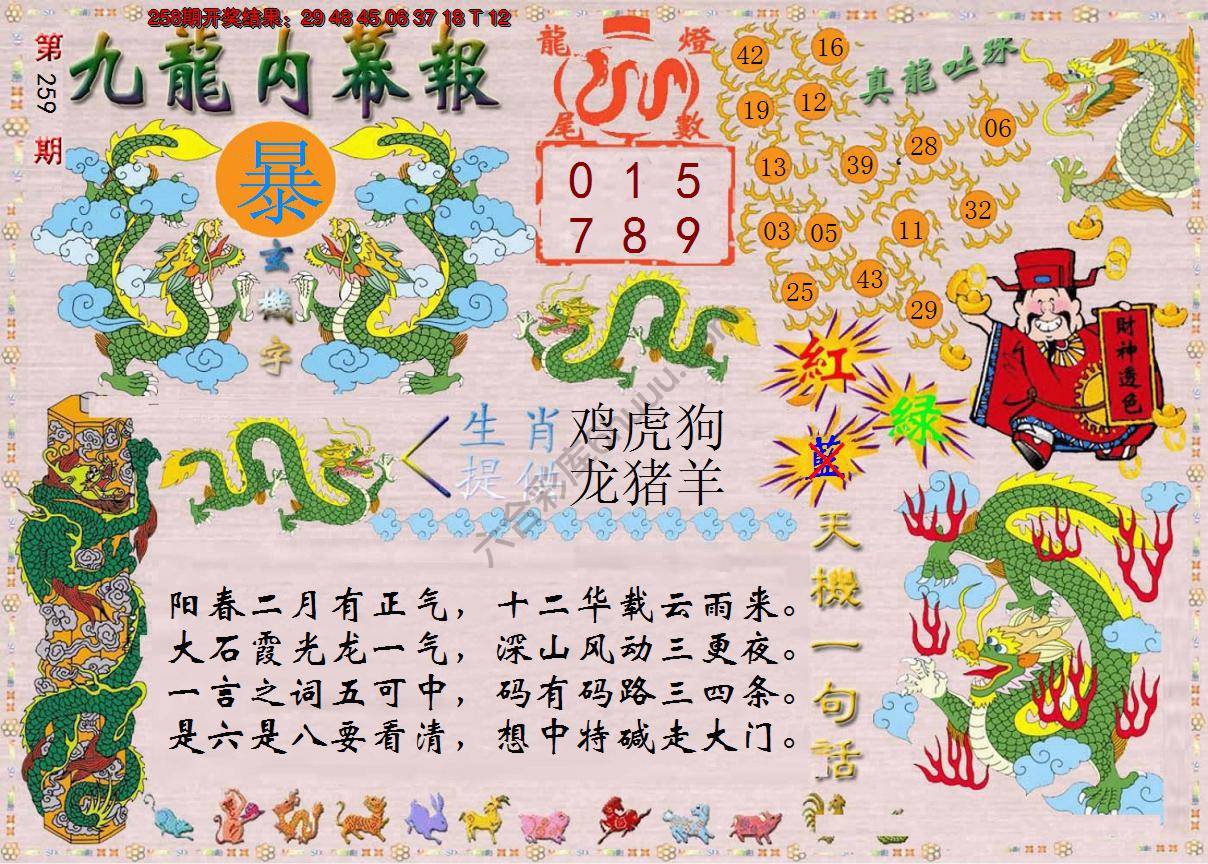 258期开奖结果：29 48 45.06 37 18 T 12
第259期
九龍内幕報
暴
玄機字
龍燈
尾數
0 1 5
7 8 9
真龍吐珠
42
16
19
12
06
28
13
39
32
03
05
11
43
25
29
財神透色
紅
綠
藍
生肖
提供
鸡虎狗
龙猪羊
阳春二月有正气，十二华载云雨来。
大石霞光龙一气，深山风动三更夜。
一言之词五可中，码有码路三四条。
是六是八要看清，想中特碱走大门。
天機一句話